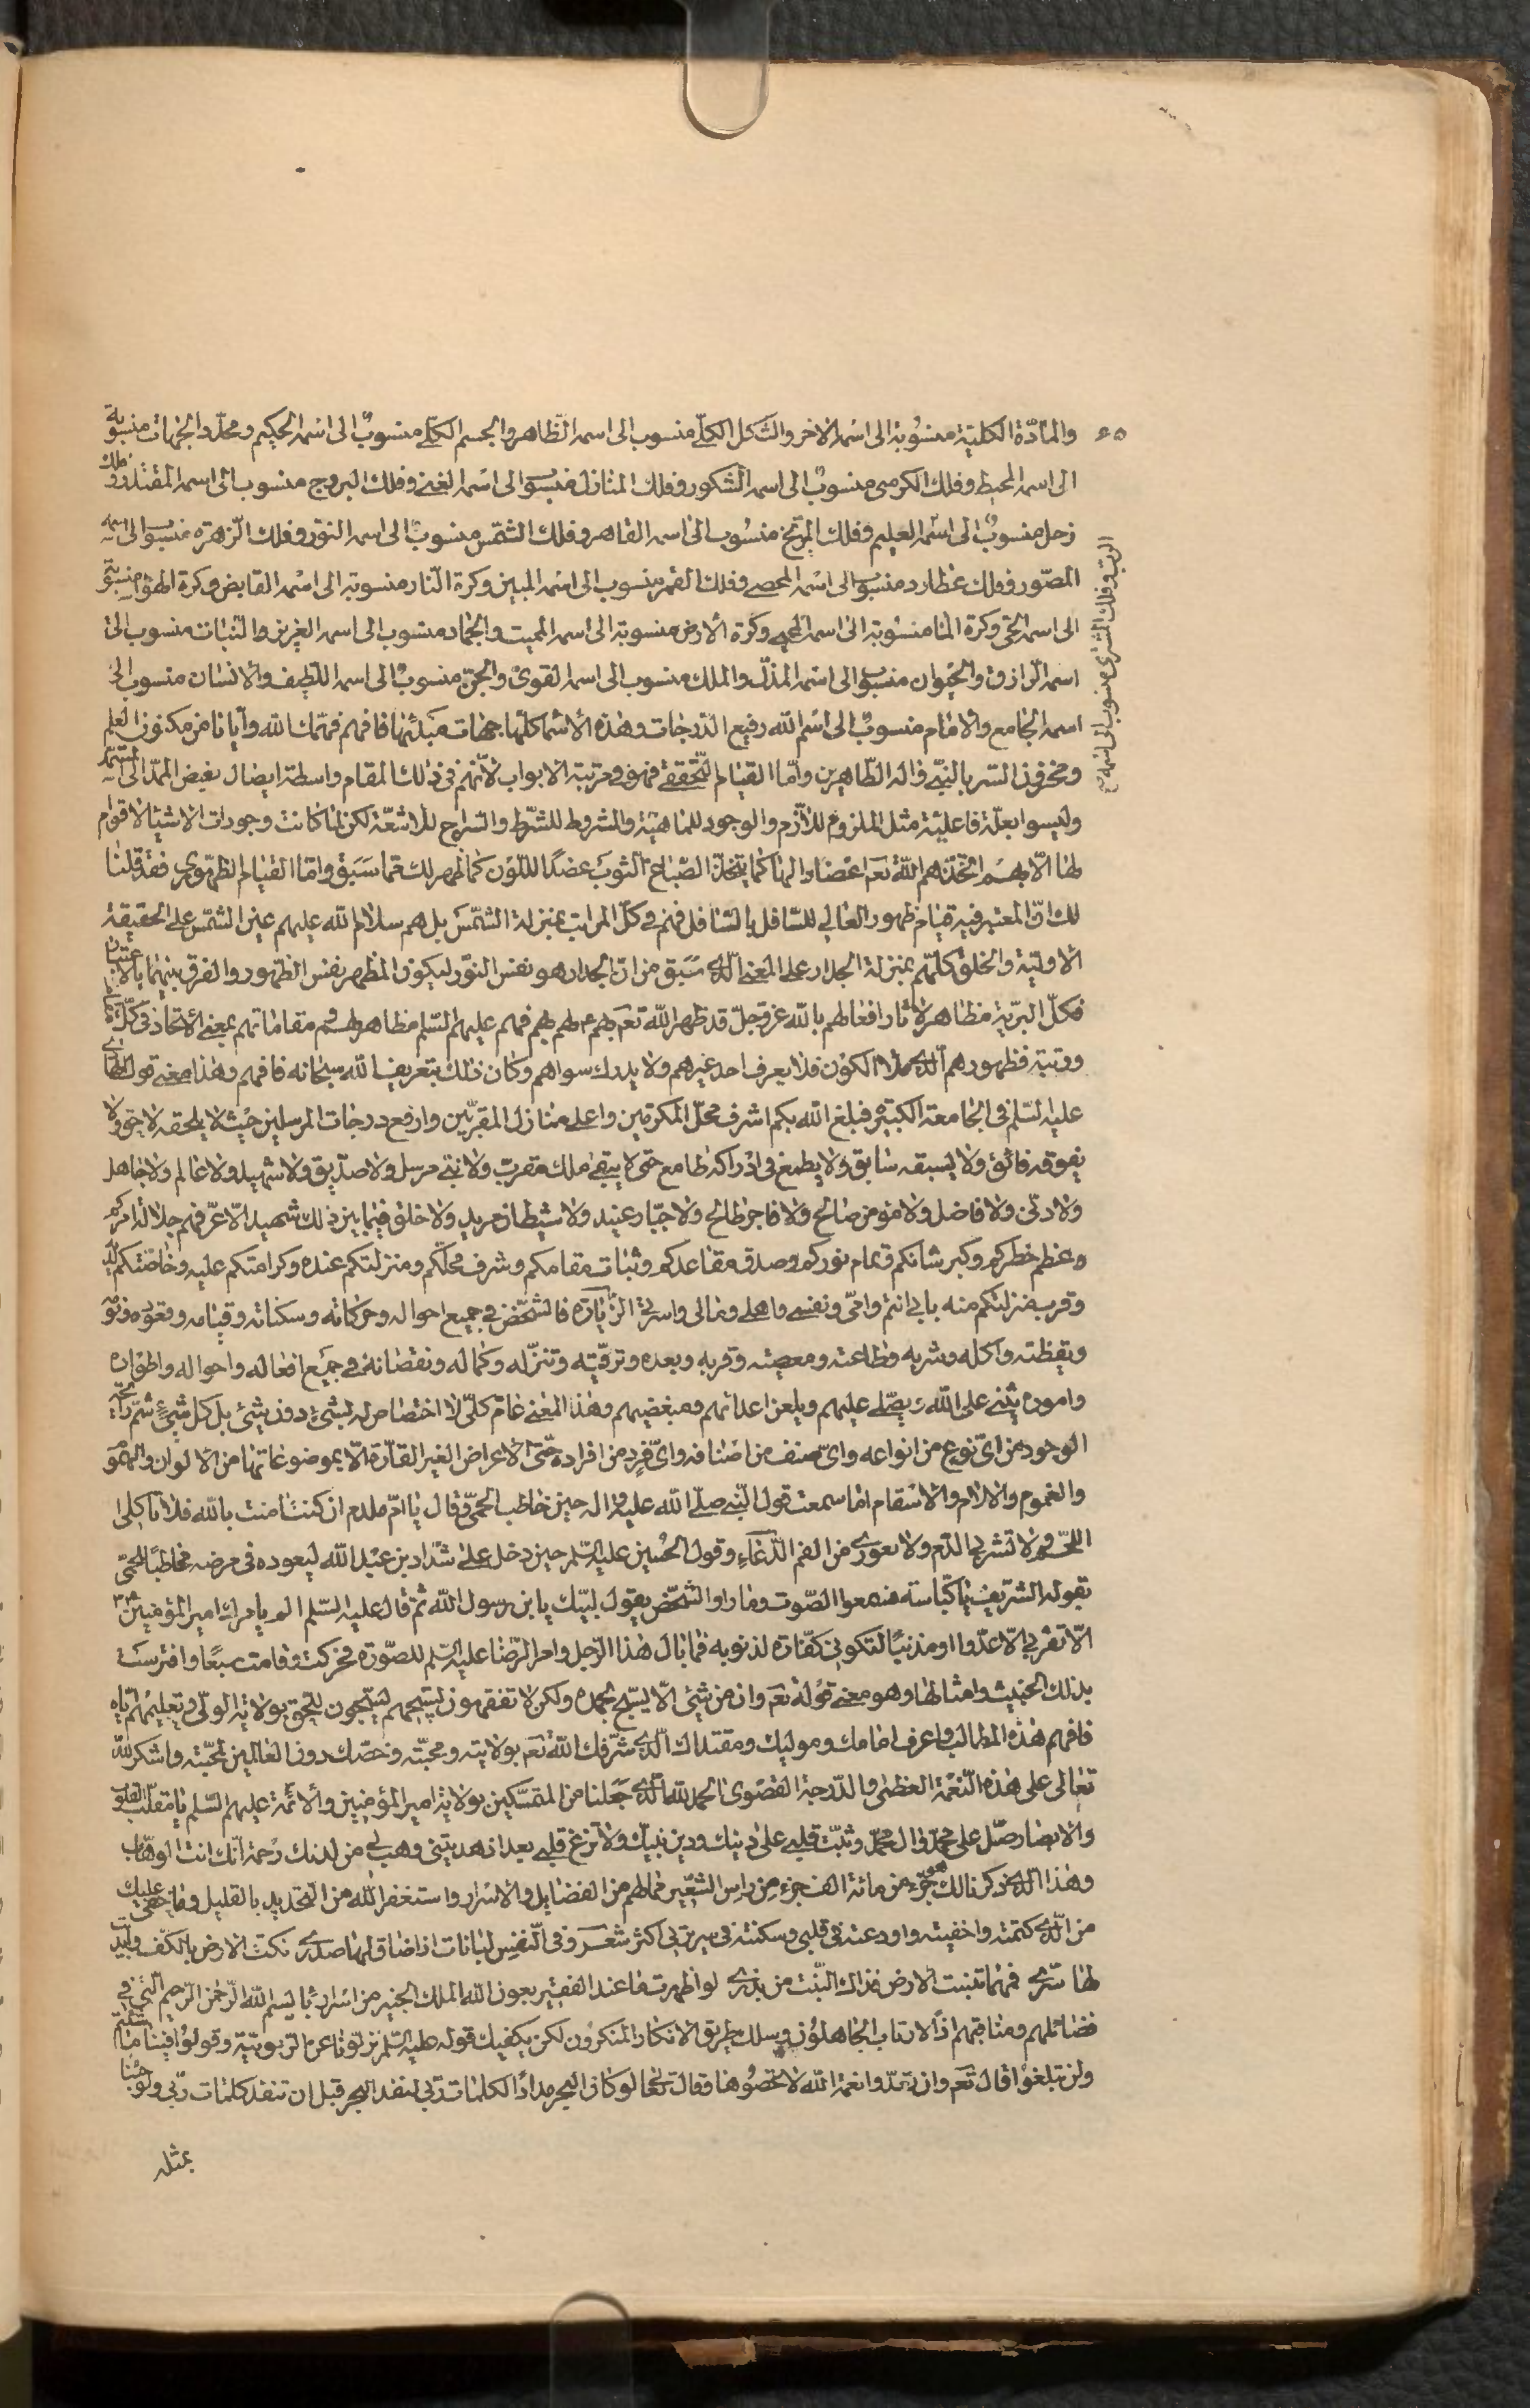 ٤٥
والمادّة الكلية منسوبة الى اسمه الاخر والشكل الكلّي منسوب الى اسمه الظاهر والجسم الكلّي منسوبٌ الى اسمه الحكيم ومحدّد الجهات منسوبة
الى اسمه المحيط وفلك الكرسى منسوبٌ الى اسمه الشكور وفلك المنازل منسوب الى اسمه الغني وفلك البروج منسوب الى اسمه المقتدر وفلك
زحل منسوبٌ الى اسمه العليم وفلك المريخ منسوب الى اسمه القاهر وفلك الشمس منسوبٌ الى اسمه النور وفلك الزهرة منسوب الى اسمه
المصّور وفلك عطارد منسوب الى اسمه المحصي وفلك القمر منسوب الى اسمه المبين وكرة النار منسوبة الى اسمه القابض وكرة الهواء منسوبة
الى اسمه الحيّ وكرة الماء منسوبة الى اسمه المحيي وكرة الارض منسوبة الى اسمه المميت والجماد منسوب الى اسمه العزيز والنبات منسوب الى
اسمه الرازق والحيوان منسوب الى اسمه المذلّ والملك منسوب الى اسمه القوى والجن منسوبٌ الى اسمه اللطيف والانسان منسوب الى
اسمه الجامع والامام منسوبٌ الى اسم الله رفيع الدرجات وهذه الاسماء كلّها جهات مبدئها فافهم فهّمك الله وايانا من مكنون العلم
ومخزون السر بالنبيّ واله الطّاهرين وامّا القيام التحققي فهو في مرتبة الابواب لانّهم في ذلك المقام واسطة ايصال فيض الممدّ الى المستمد
وليسوا بعلّة فاعليّة مثل الملزوم للازم والوجود للماهيّة والشروط للشرط والسراج للاشعّة لكن لما كانت وجودات الاشياء لا قوام
لها الّا بهم اتّخذهم الله تعم اعضادا لها كما يتخذ الصّباغ الثوب عضدًا للّلون كما ظهر لك ممّا سبق وامّا القيام الظهوري فقد قلنا
لك انّ المعتبر فيه قيام ظهور العالي للسّافل بالسّافل فهم في كلّ المراتب بمنزلة الشمس بل هم سلام الله عليهم عين الشمس على الحقيقة
الاوليّة والخلق كلّهم بمنزلة الجدار على المعنى الذي سبق من انّ الجدار هو نفس النّور ليكون المظهر نفس الظهور والفرق بينهما بالاعتبار
فكلّ البريّة مظاهر لاثار افعالهم بالله عز وجلّ قد ظهر الله تعم بهم لهم فهم عليهم السّلم مظاهر مقاماتهم بمعنى الاتحاد في كلّ مقام
ورتبة فظهورهم الذي ملأ الكون فلا يعرف احد غيرهم ولا يدرك سواهم وكان ذلك بتعريف الله سبحانه فافهم وهذا معنى قول الهادي
عليه السّلم في الجامعة الكبيرة فبلغ الله بكم اشرف محلّ المكرّمين واعلى منازل المقرّبين وارفع درجات المرسلين حيث لا يلحقه لاحق ولا
يفوقه فائق ولا يسبقه سابق ولا يطمع في ادراكه طامع حتى لا يبقى ملك مقرب ولا نبيّ مرسل ولا صدّيق ولا شهيد ولا عالم ولا جاهل
ولا دنّى ولا فاضل ولا مؤمن صالح ولا فاجر طالح ولا جبّار عنيد ولا شيطان مريد ولا خلق فيما بين ذلك شهيد الّا عرّفهم جلالة امركم
وعظم خطركم وكبر شانكم وتمام نوركم وصدق مقاعدكم وثبات مقامكم وشرف محلّكم ومنزلتكم عنده وكرامتكم عليه وخاصّتكم لديه
وقرب منزلتكم منه بابي انتم وامّي ونفسي واهلي ومالي واسرتي الزّيارة فالشخص في جميع احواله وحركاته وسكناته وقيامه وقعوده ونومه
ويقظته واكله وشربه وطاعته ومعصيته وقربه وبعده وترقّيه وتنزّله وكماله ونقصانه في جميع افعاله واحواله واطواره
واموره يثني على الله ويصّلي عليهم ويلعن اعدائهم ومبغضيهم وهذا المعنى عامّ كلّي لا اختصاص له بشيء دون شيئ بل كل شيء شمّ رايحة
الوجود من اىّ نوع من انواعه واىّ صنف من اصنافه واىّ فرد من افراده حتّى الاعراض الغير القارّة الّا بموضوعاتها من الالوان والهموم
والغموم والالام والاسقام اما سمعت قول النّبي صلّى الله عليه واله حين خاطب الحمّى وقال يا امّ ملدم ان كنت امنت بالله فلا تاكلي
اللحم ولا تشربي الدّم ولا تفوري من الفم الدّعاء وقول الحسين عليه السّلم حين دخل على شدّاد بن عبد الله ليعوده في مرضه مخاطبا للحمّى
بقوله الشريف يا كبّاسة فسمعوا الصّوت وما راوا الشخص يقول لبّيك يا بن رسول الله ثمّ قال عليه السّلم الم يامرك امير المؤمنين
الّا تقربي الّا عدّوا او مذنبًا لتكوني كفّارة لذنوبه فما بال هذا الرّجل وامر الرّضا عليه السّلم للصّورة فتحركت وقامت سبعًا وافترست
بذلك الخبيث وامثالها وهو معنى قوله تعم وان من شيئ الّا يسبّح بحمده ولكن لا تفقهون تسبيحهم يسبّحون للحق بولاية الولىّ وتعليمهم اياه
فافهم هذه المطالب واعرف امامك وموليك ومقتداك الذي شرّفك الله تعم بولايته ومحبّته وخصّك دون العالمين بمحبّته واشكر لله
تعالى على هذه النّعمة العظمى والدّرجة القصوى الحمد لله الذي جعلنا من المتمسّكين بولاية امير المؤمنين والائمّة عليهم السّلم يا مقلّب القلوب
والابصار صّل على محمّد وال محمّد وثبّت قلبي على دينك ودين نبيّك ولا تزغ قلبي بعد اذ هديتني وهب لي من لدنك رحمة انّك انت الوهّاب
وهذا الذي ذكرنا لك هو جزء من مائة الف جزء من راس الشعير فما لهم من الفضايل والاسرار واستغفر الله من التحديد بالقليل وما خفي عليك
من الّذي كتمته واخفيته واودعته في قلبي وسكنته في سريرتي اكثر شعر وفي النّفس لبانات اذا ضاق لها صدري نكتّ الارض بالكفّ وابديت
لها سّري فمهما تنبت الارض فذاك النّبت من بذري لو اظهرت ما عند الفقير بعون الله الملك الخبير من اسرار باء بسم الله الرّحمن الرّحيم التي في
فضائلهم ومناقبهم اذًا لارتاب الجاهلون وسلك طريق الانكار المنكرون لكن يكفيك قوله عليه السّلم نزلّونا عن الرّبوبيّة وقولوا فينا ما شئتم
ولن تبلغوا قال تعم وان تعدّوا نعمة الله لا تحصوها وقال تعالى لو كان البحر مدادًا لكلمات ربّي لنفد البحر قبل ان تنفد كلمات ربّي ولو جئنا
بمثله
الربّ وفلك المشترى منسوب الى اسمه